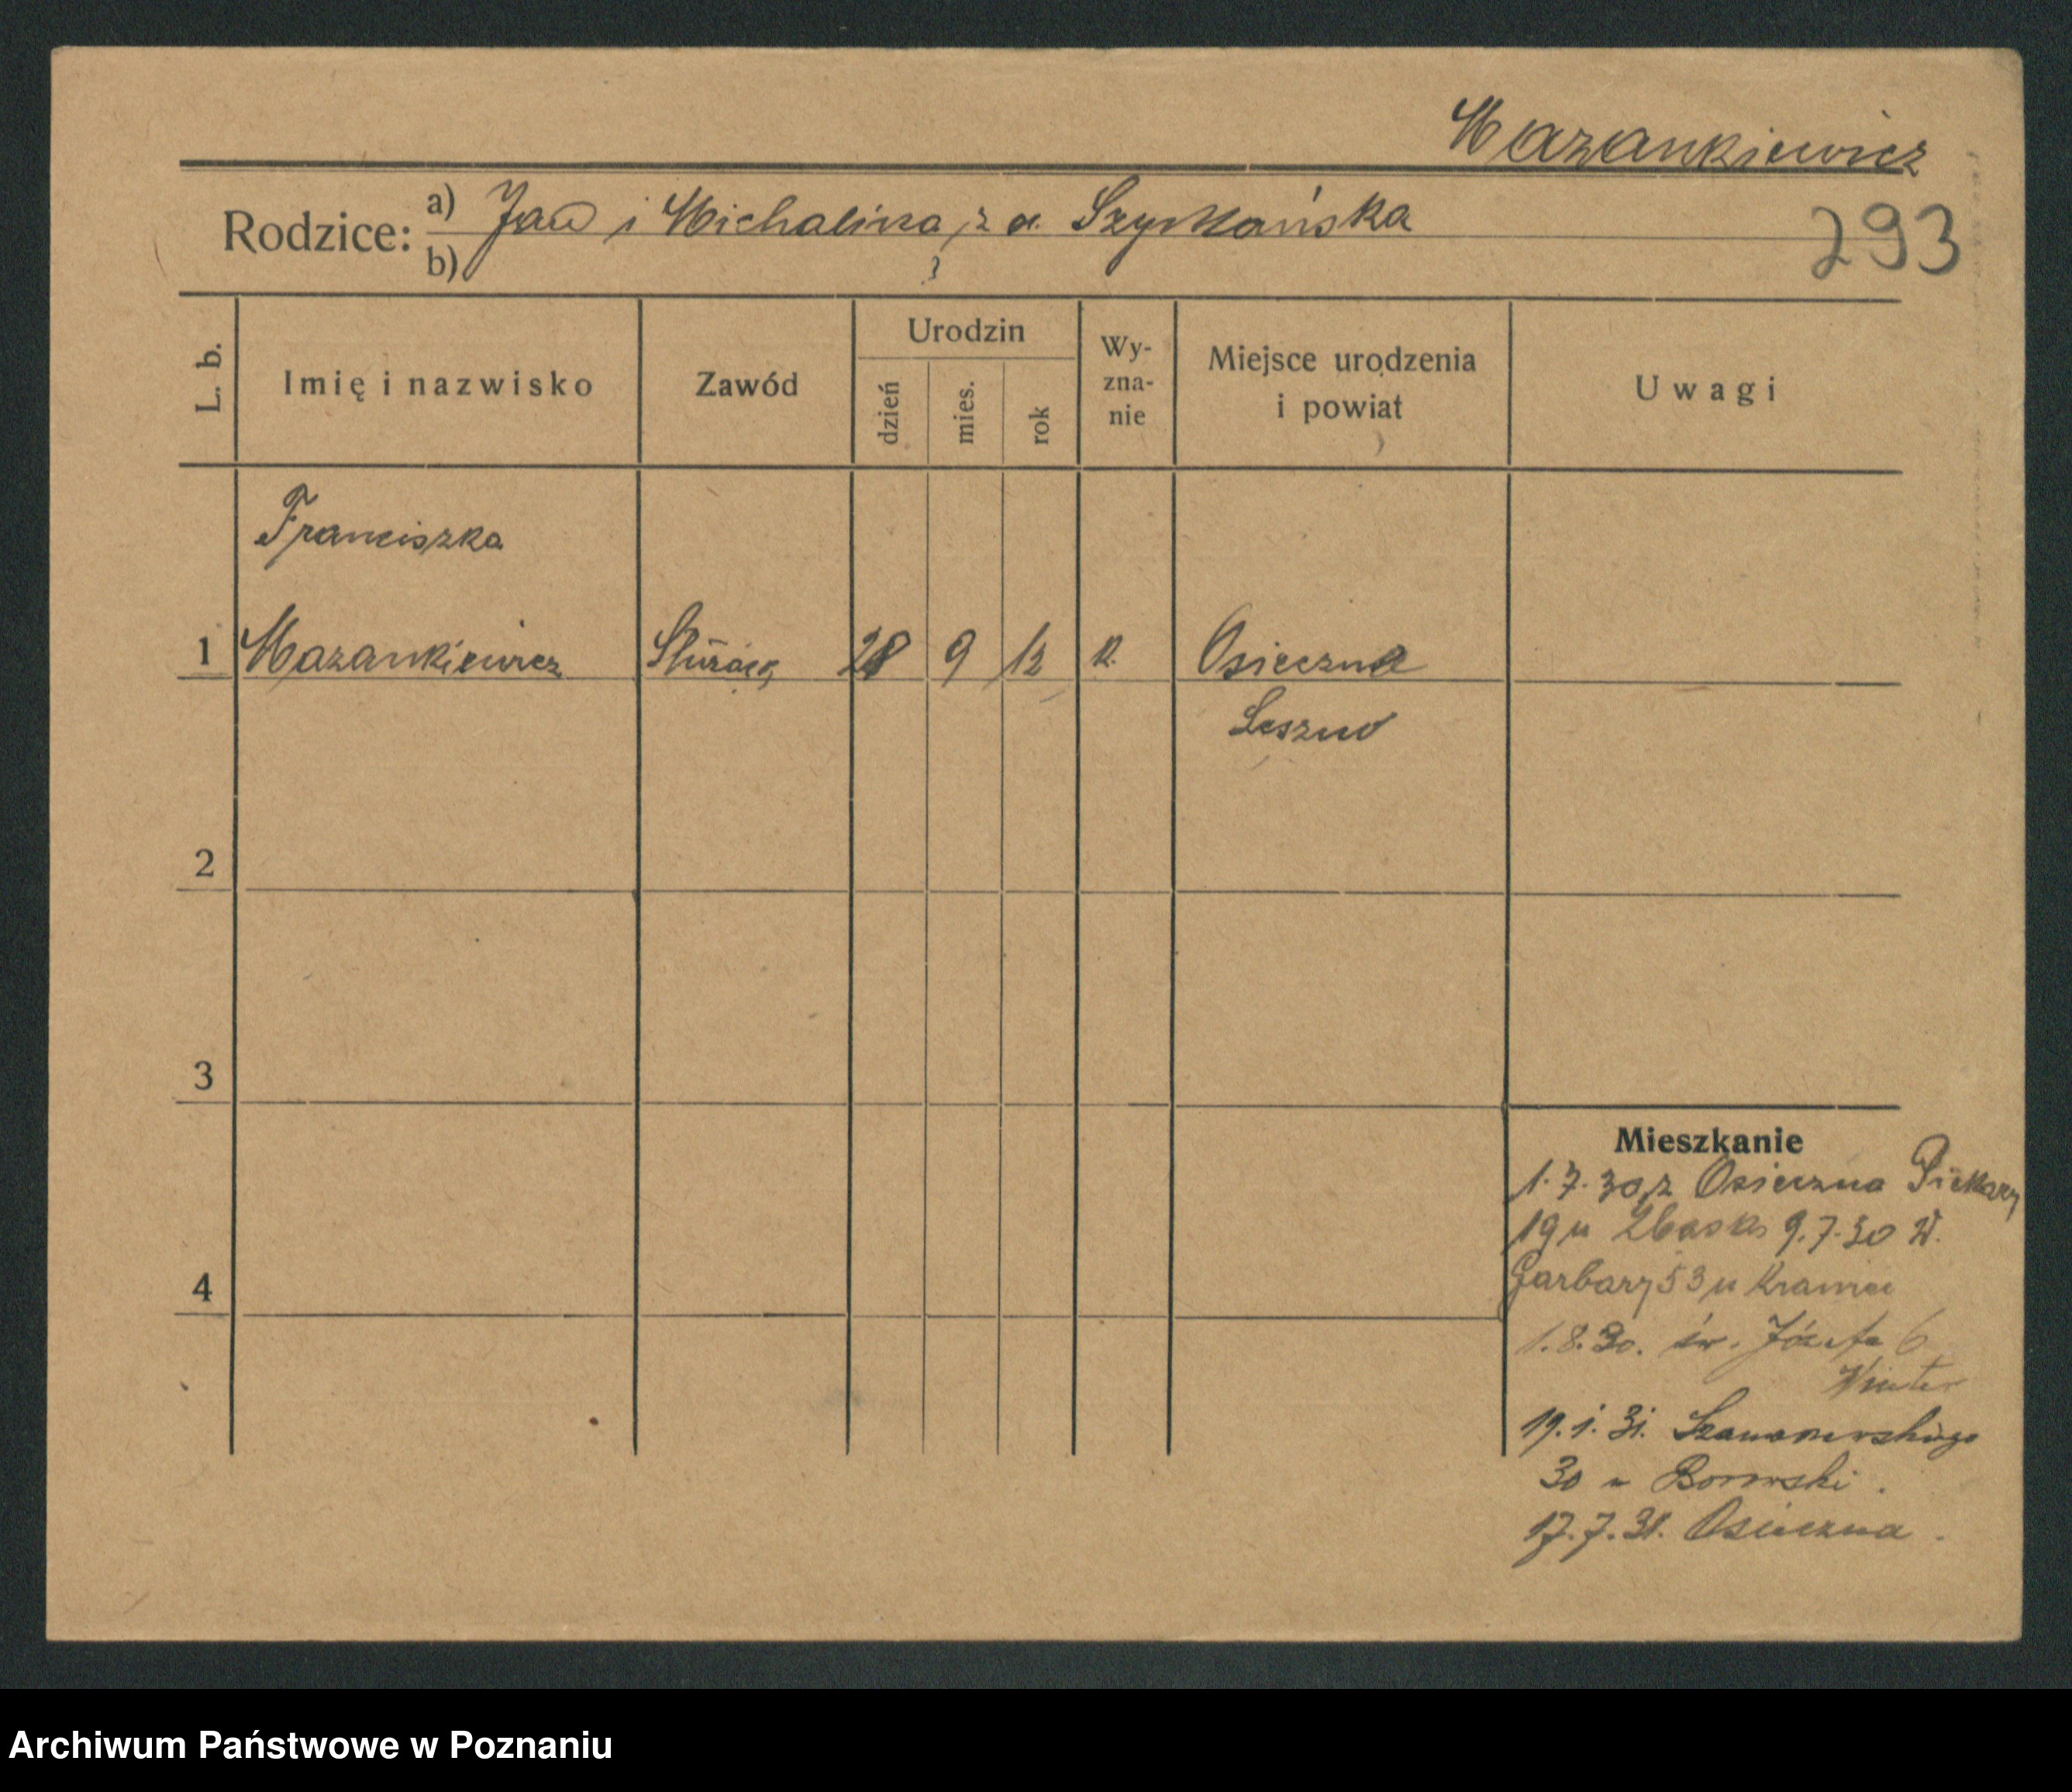 Mazankiewicz
293
Rodzice: a) Jan i Michalina, z d. Szymańska
b)
L. b.
Imię i nazwisko
Zawód
Urodzin
dzień
mies.
rok
Wy-
zna-
nie
Miejsce urodzenia
i powiat
Uwagi
Franciszka
1 Mazankiewicz Służąca 28 9 12 k. Osieczna
Leszno
2
3
4
Mieszkanie
1.7.30 z Osieczna Piekary
19 u 9.7.30 W.
Garbary 53 u Kramer
1.8.30. św. Józefa 6
Winter
19.1.31. Szamarzewskiego
30 u Borowski.
17.7.31. Osieczna.
Archiwum Państwowe w Poznaniu